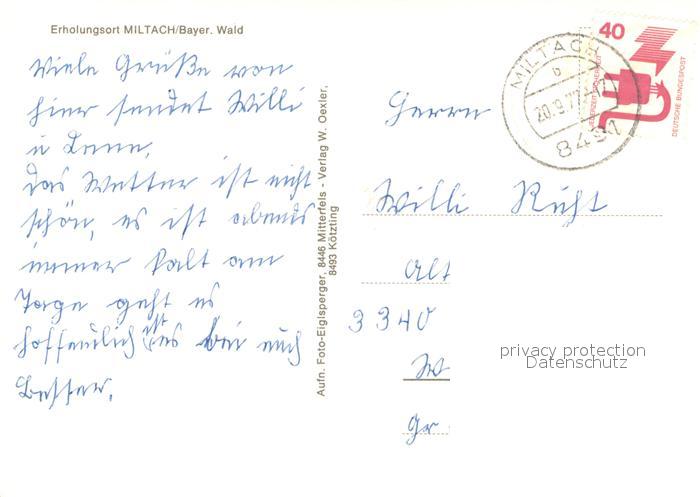 Erholungsort MILTACH/Bayer. Wald
Viele Grüße von
hier sendet Willi
u
das Wetter ist nicht
schön, es ist abends
immer kalt am
Tage geht es
hoffentlich ist es bei euch
besser.
Aufn. Foto-Eiglsperger, 8446 Mitterfels - Verlag W. Oexler,
8493 Kötzting
MILTACH
20.9.7
40
JEDERZEIT SICHERHEIT
DEUTSCHE BUNDESPOST
Herrn
Willi
Alt
3340
W
Gr
privacy protection
Datenschutz